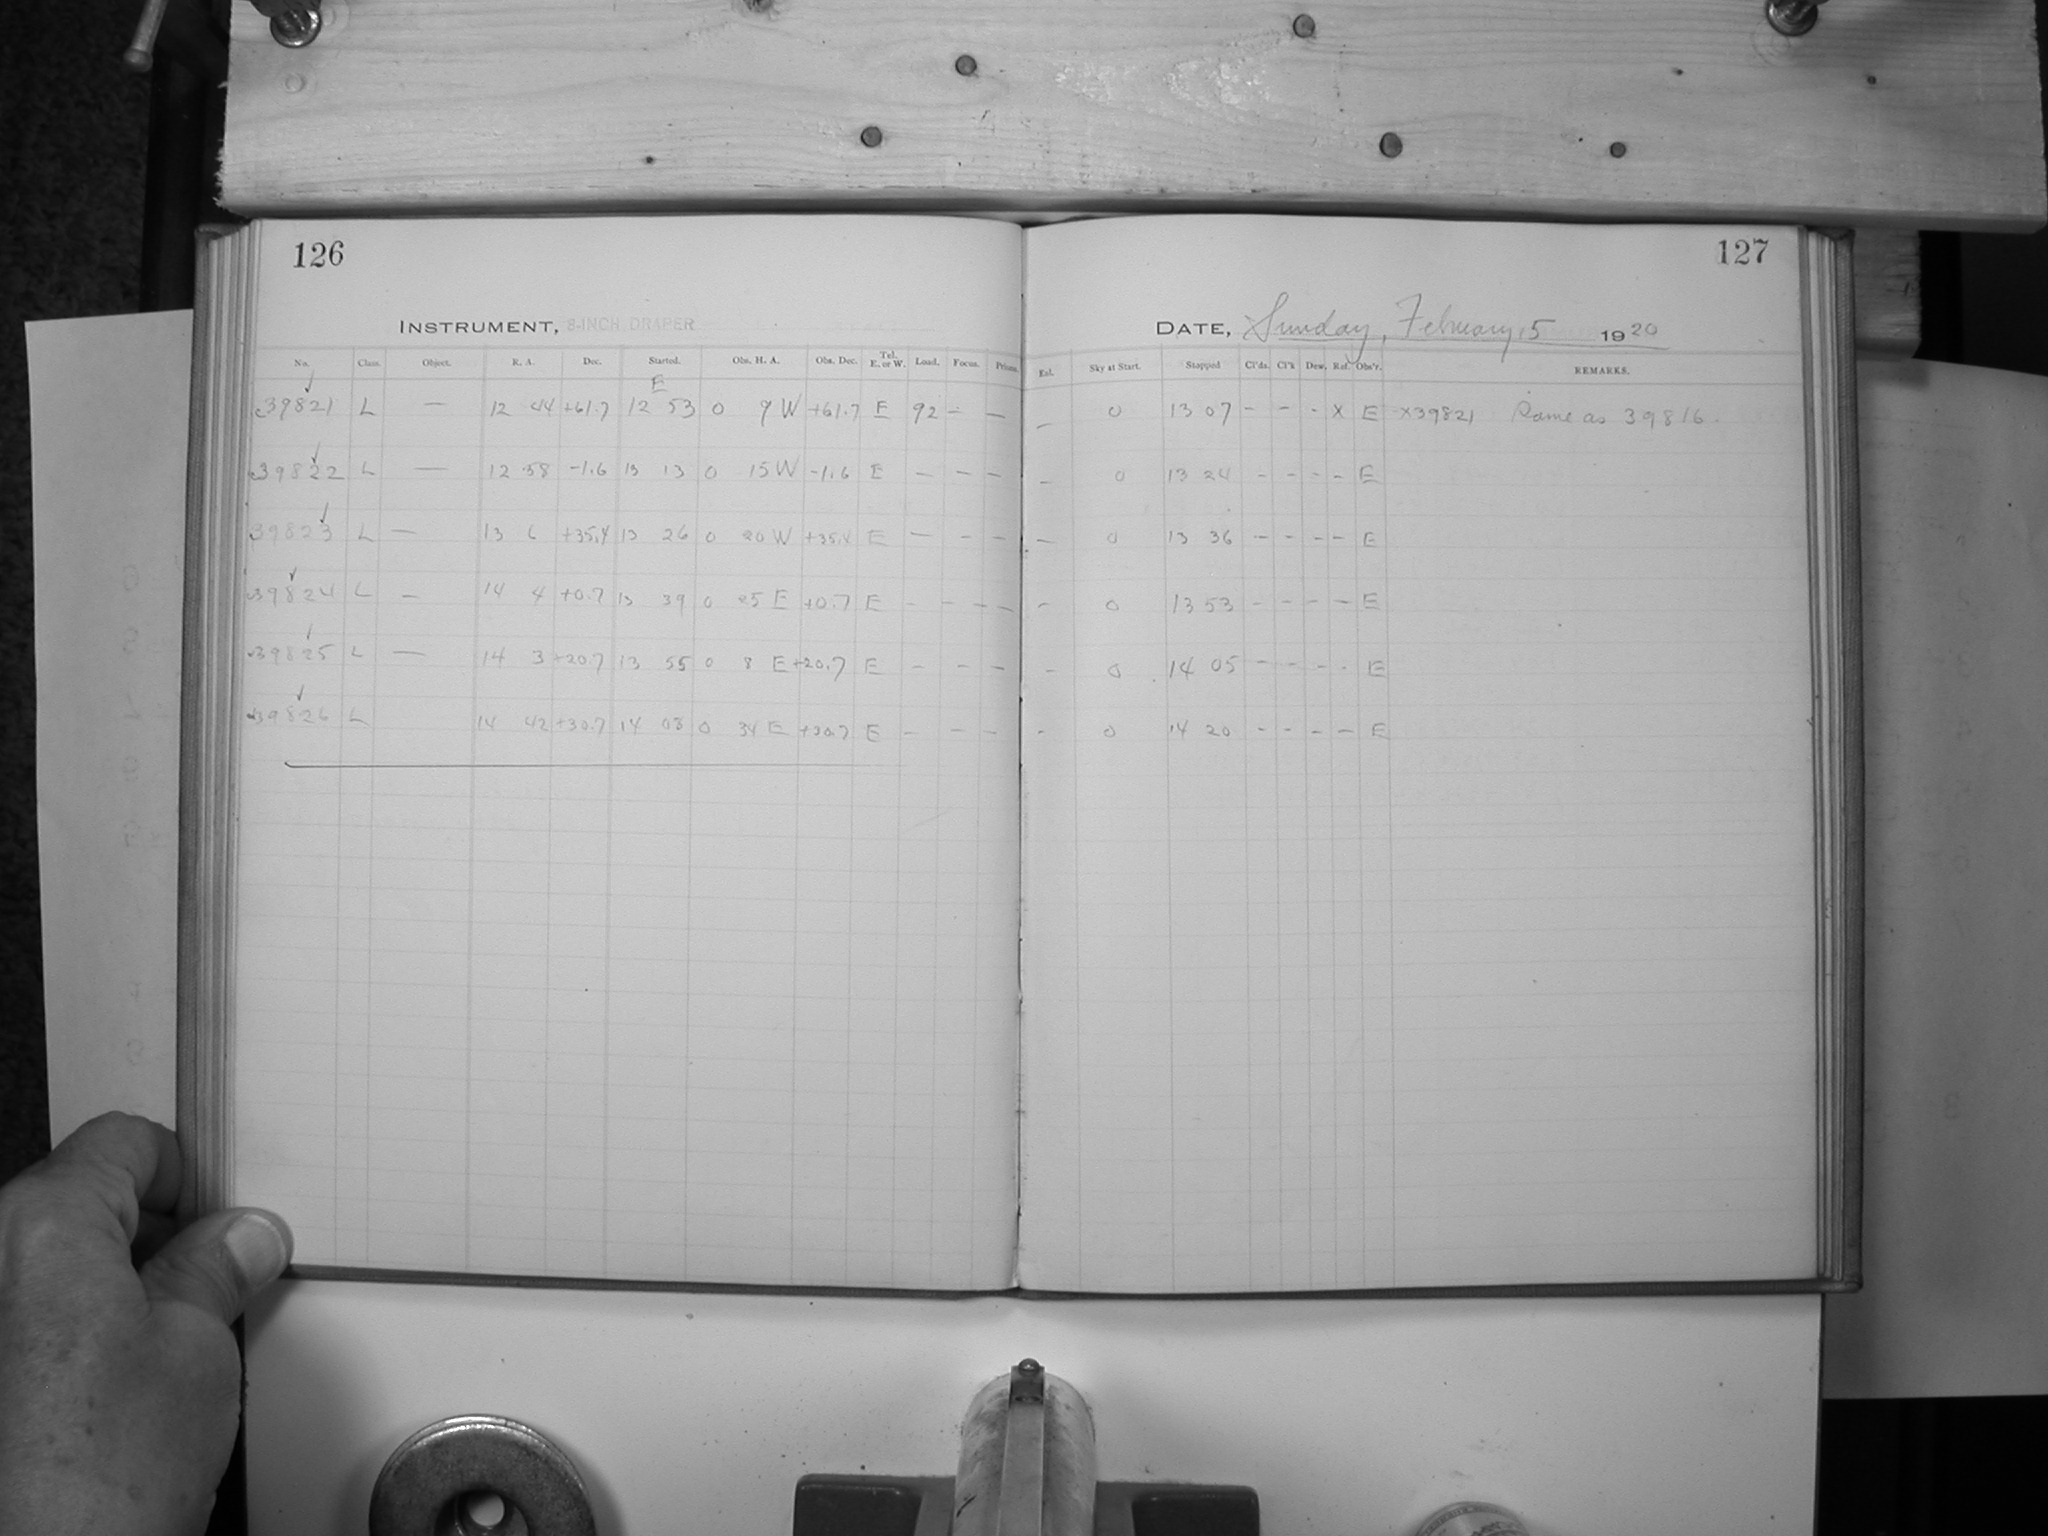 126
127
INSTRUMENT, 8-INCH DRAPER
DATE, Sunday, February 15 1920
No. Class. Object. R. A. Dec. Started. Obs. H. A. Obs. Dec. Tel. E. or W. Load. Focus. Prisms. Exl. Sky at Start. Stopped Cl'ds. Cl'k Dew. Ref. Obs'r. REMARKS.
E
39821 L — 12 44 +61.7 12 53 0 9 W +61.7 E 92 — — — 0 13 07 - - - X E X39821 Same as 39816.
39822 L — 12 58 -1.6 13 13 0 15 W -1.6 E — — — — 0 13 24 - - - - E
39823 L — 13 6 +35.4 13 26 0 20 W +35.4 E — — — — 0 13 36 - - - - E
39824 L — 14 4 +0.7 13 39 0 25 E +0.7 E - - - - - 0 13 53 - - - - E
39825 L — 14 3 +20.7 13 55 0 8 E +20.7 E - - - - 0 14 05 - - - - E
39826 L 14 42 +30.7 14 08 0 34 E +30.7 E - - - - 0 14 20 - - - - E